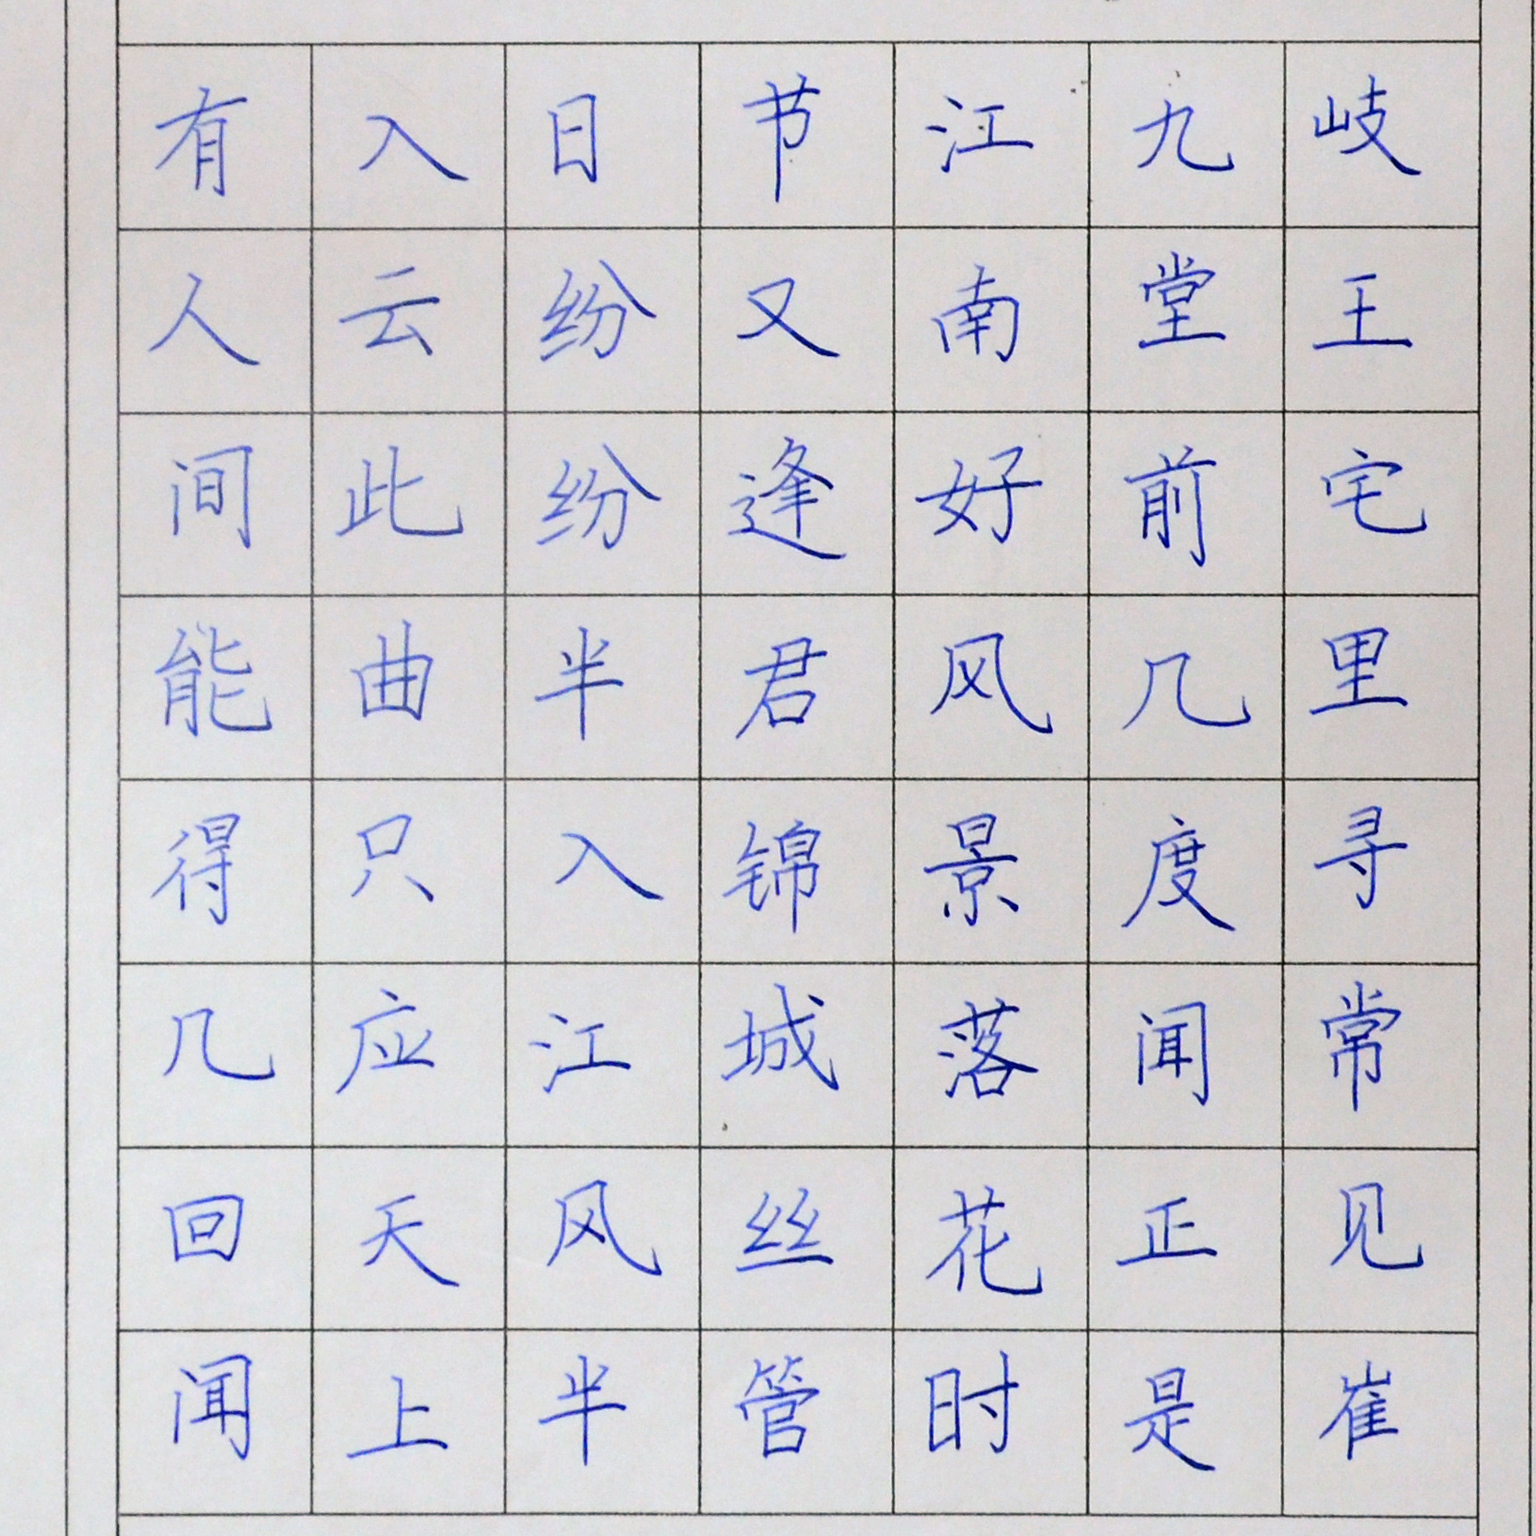 岐王宅里寻常见崔
九堂前几度闻正是
江南好风景落花时
节又逢君锦城丝管
日纷纷半入江风半
入云此曲只应天上
有人间能得几回闻